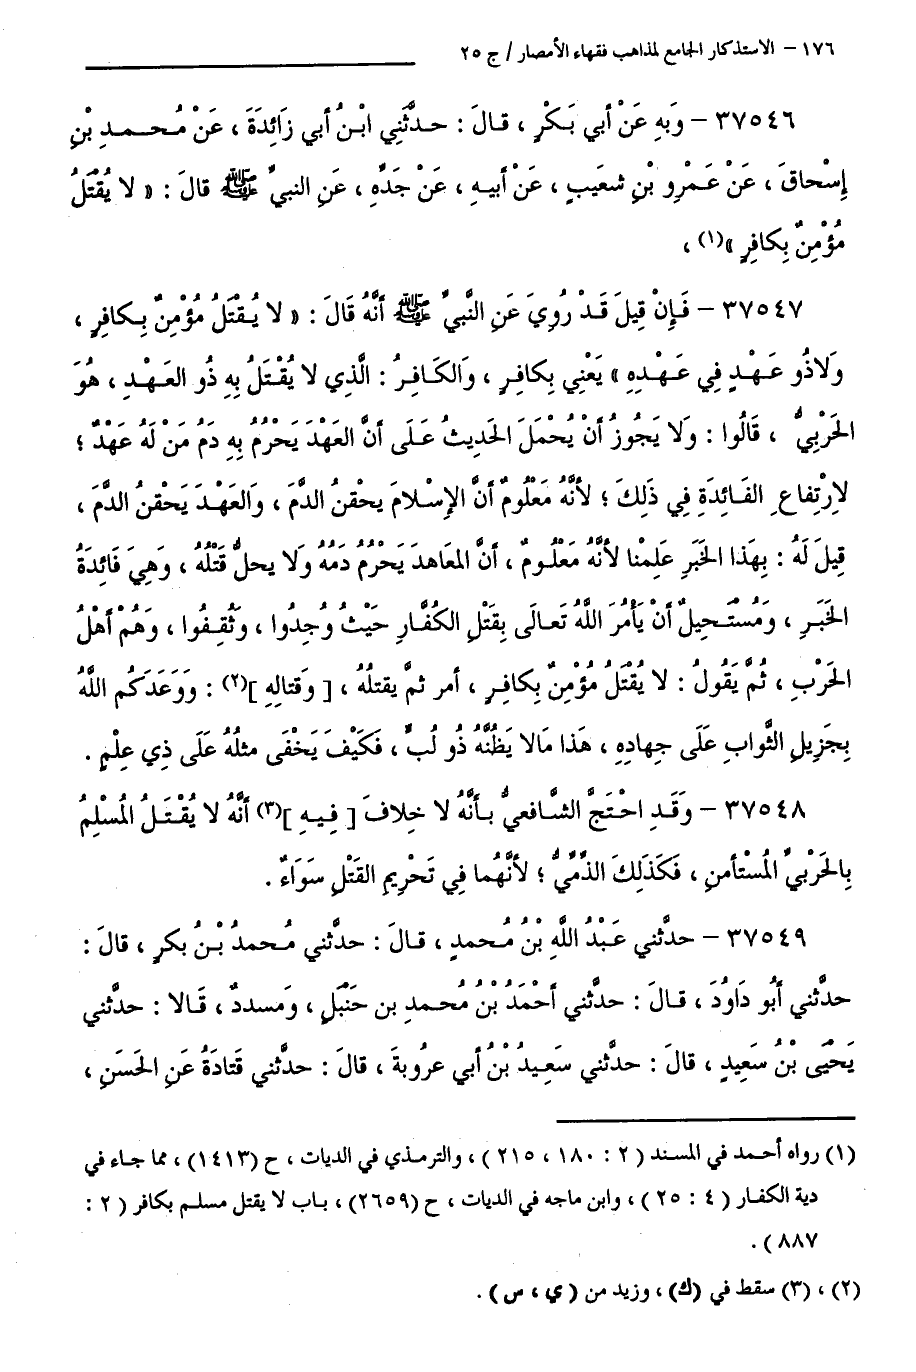 ١٧٦ – الاستذكار الجامع لمذاهب فقهاء الأمصار / ج ٢٥
٣٧٥٤٦ – وَبِهِ عَنْ أبي بَكْرٍ ، قالَ : حدَّثَنِي ابْنُ أبي زَائِدَةَ ، عَنْ مُحـمـدِ بْنِ
إِسْحاقَ ، عَنْ عَمْرِو بْنِ شعَيبٍ ، عَنْ أبيهِ ، عَنْ جَدِّهِ ، عَنِ النبيِّ ﷺ قالَ : « لا يُقْتَلُ
مُؤْمِنٌ بِكافِرٍ »(١) ،
٣٧٥٤٧ – فَإِنْ قِيلَ قَدْ رُوِيَ عَنِ النَّبيِّ ﷺ أنَّهُ قَالَ : « لا يُـقْتَلُ مُؤْمِنٌ بِـكَافِرٍ ،
وَلاَذُو عَـهْدٍ فِي عَـهْدِهِ » يَعْنِي بِكافِرٍ ، وَالكَافِرُ : الَّذِي لا يُقْتَلُ بِهِ ذُو العَـهْدِ ، هُوَ
الحَرْبِيُّ ، قَالُوا : وَلا يَجُوزُ أنْ يُحْمَلَ الحَدِيثُ عَـلَى أنَّ العَهْدَ يَحْرُمُ بِهِ دَمُ مَنْ لَهُ عَهْدٌ ؛
لاِرْتِفاعِ الفَـائِدَةِ فِي ذَلِكَ ؛ لأنَّهُ مَعْلُومٌ أنَّ الإِسْـلامَ يحْقنُ الدَّمَ ، وَالعَـهْدَ يَحْقنُ الدَّمَ ،
قِيلَ لَهُ : بِهَذا الخَبَرِ عَلِمْنا لأنَّهُ مَعْلُـومٌ ، أنَّ المعَاهدَ يَحْرُمُ دَمُهُ وَلا يحلُّ قَتْلُهُ ، وَهِيَ فَائِدَةُ
الخَبَرِ ، وَمُسْتَـحِيلٌ أنْ يَأمُرَ اللَّهُ تَعَالَى بِقَتْلِ الكُفَّارِ حَيْثُ وُجِدُوا ، وَثُقِفُوا ، وَهُمْ أهْلُ
الحَرْبِ ، ثُمَّ يَقُولُ : لا يُقْتَلُ مُؤْمِنٌ بِكافِرٍ ، أمر ثمَّ يقتلُهُ ، [ وَقتالِهِ ](٢) : وَوَعَدَكُم اللَّهُ
بِجَزِيلِ الثَّوابِ عَلَى جهادِهِ ، هَذا مَالا يَظُنُّهُ ذُو لُبٍّ ، فَكَيْفَ يَخْفَى مثلُهُ عَلَى ذِي عِلْمٍ .
٣٧٥٤٨ – وَقَـدِ احْتَجَّ الشَّـافعيُّ بـأنَّهُ لا خِلافَ [ فِيهِ ](٣) أنَّهُ لا يُقْـتَـلُ المُسْلِمُ
بِالحَرْبيِّ المُسْتَأمنِ ، فَكَذَلِكَ الذِّمِّيُّ ؛ لأنَّهُما فِي تَحْرِيمِ القَتْلِ سَوَاءٌ .
٣٧٥٤٩ – حدَّثني عَبْدُ اللَّهِ بْنُ مُحمدٍ ، قـالَ : حدَّثني مُحمدُ بْـنُ بكرٍ ، قالَ :
حدَّثني أبُو دَاوُدَ ، قـالَ : حدَّثني أحْمَدُ بْنُ مُحـمدِ بن حَنْبَلٍ ، وَمسددٌ ، قَـالا : حدَّثني
يَحْيَى بْنُ سَعِيدٍ ، قالَ : حدَّثني سَعِيدُ بْنُ أبي عرُوبةَ ، قالَ : حدَّثني قَتادَةُ عَنِ الحَسَنِ ،
(١) رواه أحـمد في المسند ( ٢ : ١٨٠ ، ٢١٥ ) ، والترمـذي في الديات ، ح (١٤١٣) ، مما جـاء في
دية الكفـار ( ٤ : ٢٥ ) ، وابن ماجه في الديات ، ح (٢٦٥٩) ، باب لا يقتل مسلـم بكافر ( ٢ :
٨٨٧ ) .
(٢) ، (٣) سقط في (ك) ، وزيد من ( ي ، س ) .